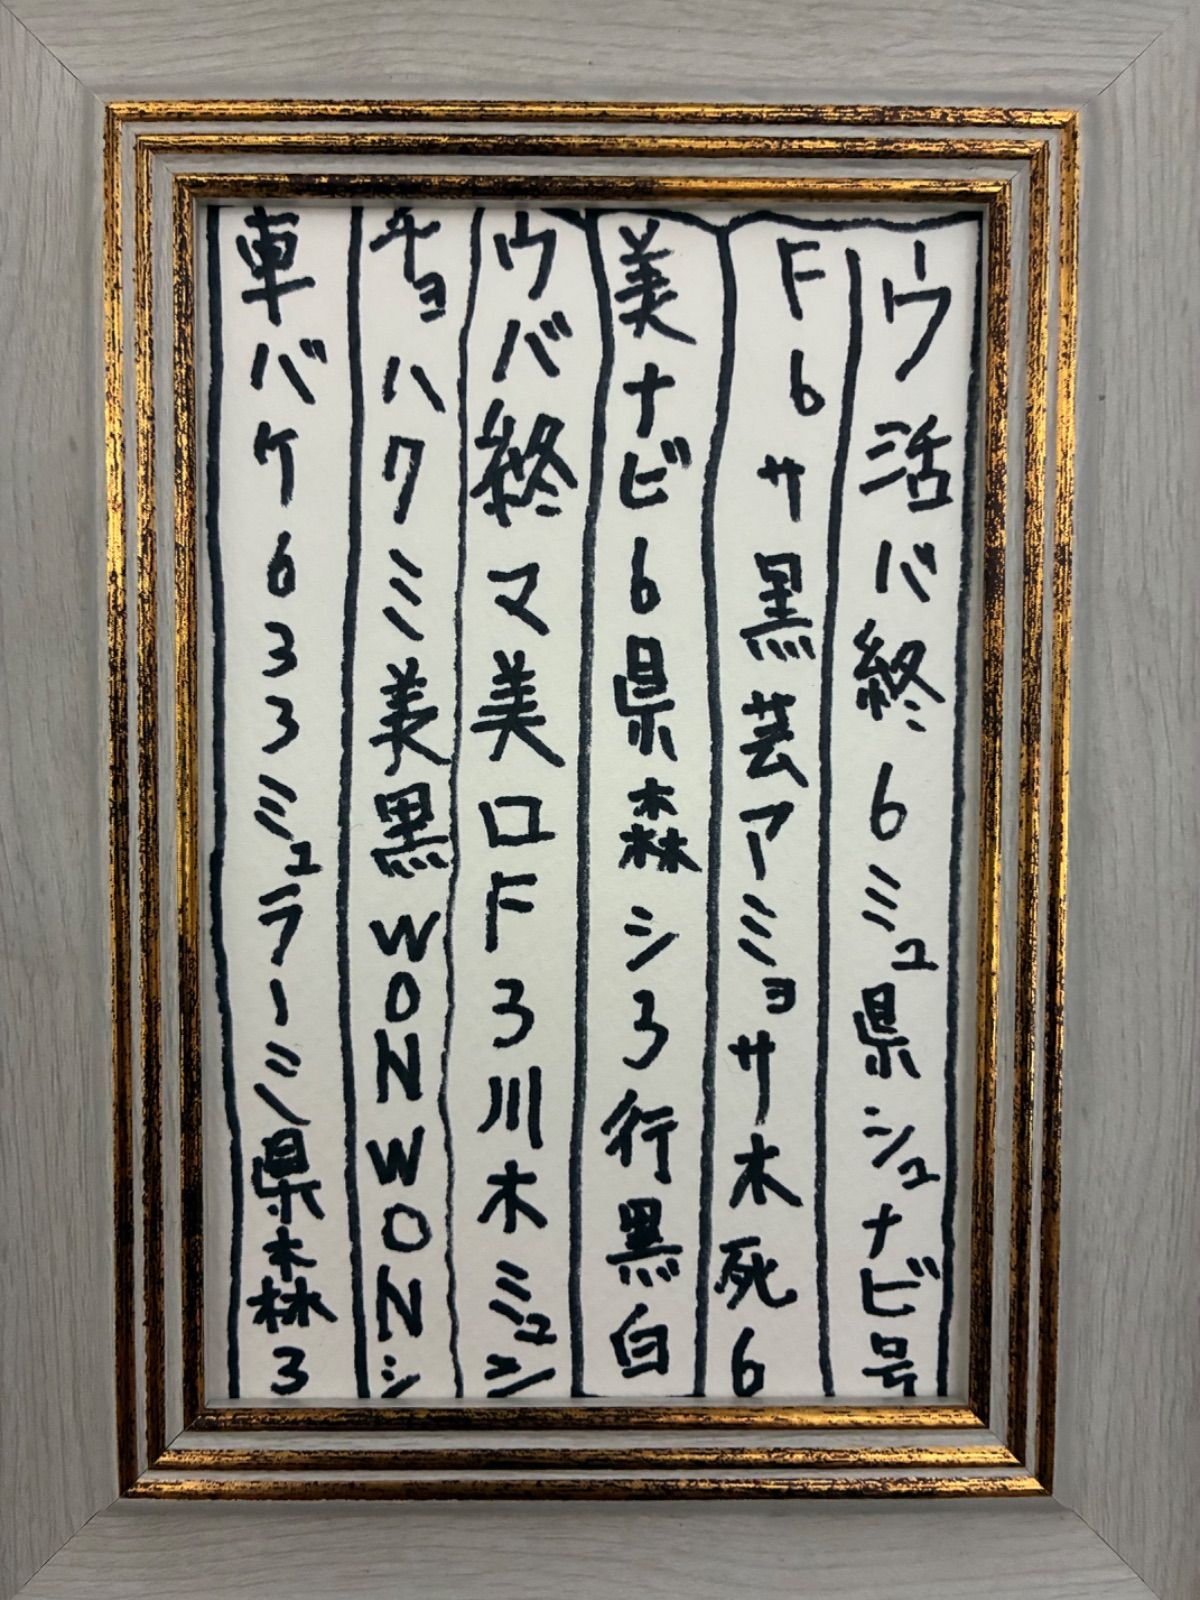 ーウ活バ終6ミュ県シュナビ号
F6サ黒芸アーミョサ木死6
美ナビ6県森シろ行黒白
ウバ終マ美ロF3川木ミュン
キョハクミ美黒WONWONシ
車バケ633ミュラーミ県森3